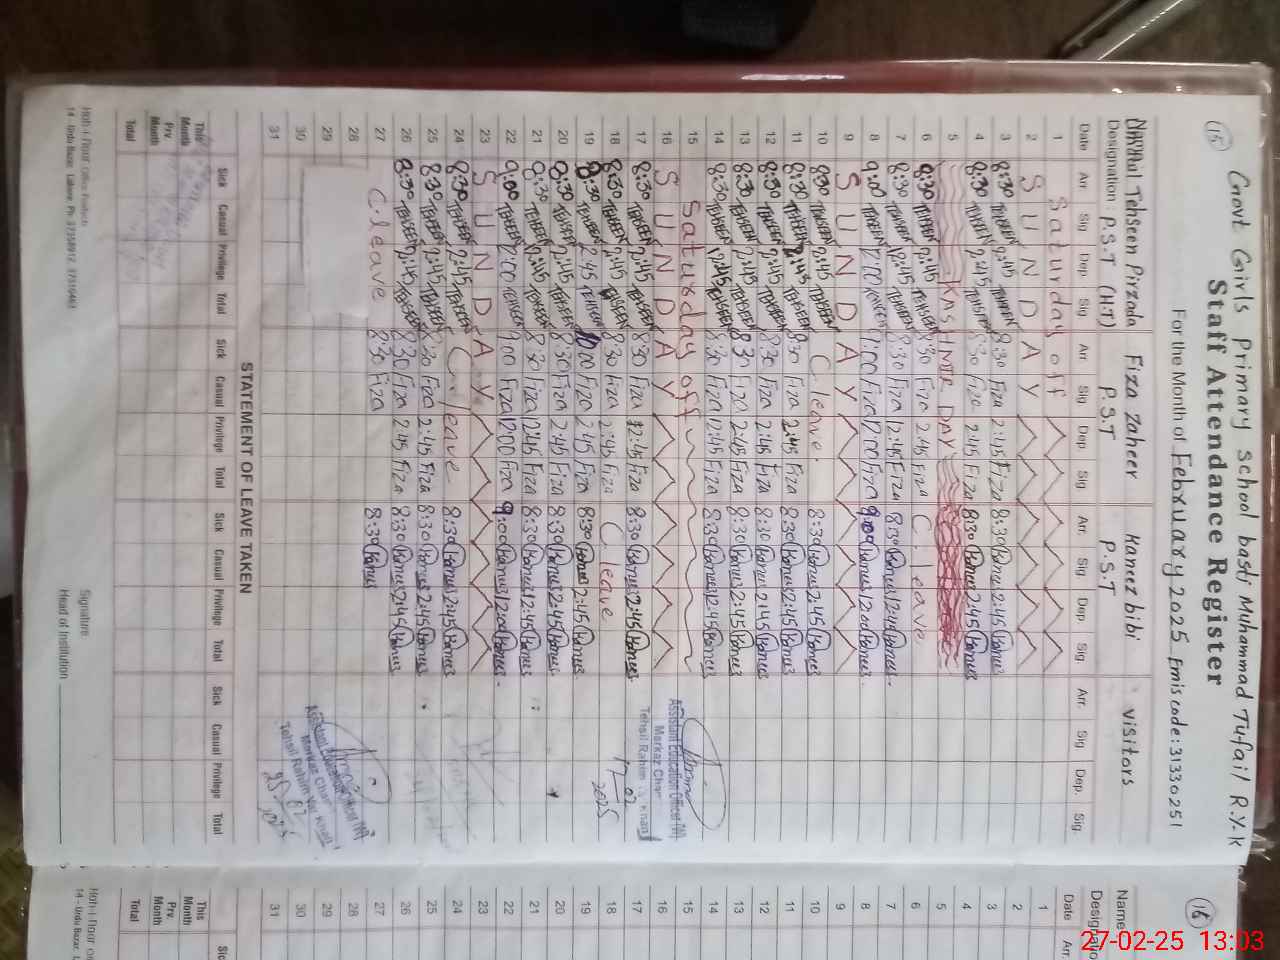 (15)
Govt Girls Primary School basti Muhammad Tufail R.Y.K
Staff Attendance Register
For the Month of February 2025 Emiscode:31330251
Name Tehseen Pirzada Fiza Zaheer Kaneez bibi visitors
Designation P.S.T (H.T) P.S.T P.S.T
Date Arr. Sig Dep. Sig Arr. Sig Dep. Sig Arr. Sig Dep. Sig Arr. Sig Dep. Sig
1 Saturday off
2 SUNDAY
3 8:30 TEHSEEN 2:45 TEHSEEN 8:30 Fiza 2:45 Fiza 8:30 2:45
4 8:30 TEHSEEN 2:45 TEHSEEN 8:30 Fiza 2:45 Fiza 8:30 2:45
5 DAY
6 8:30 TEHSEEN 2:45 TEHSEEN 8:30 Fiza 2:45 Fiza C. leave
7 8:30 TEHSEEN 2:45 TEHSEEN 8:30 Fiza 12:45 Fiza 8:30 12:45
8 9:00 TEHSEEN 12:00 TEHSEEN 9:00 Fiza 12:00 Fiza 9:00 12:00
9 SUNDAY
10 8:30 TEHSEEN 2:45 TEHSEEN C. leave. 8:30 2:45
11 8:30 TEHSEEN 2:45 TEHSEEN 8:30 Fiza 2:45 Fiza 8:30 2:45
12 8:30 TEHSEEN 2:45 TEHSEEN 8:30 Fiza 2:45 Fiza 8:30 2:45
13 8:30 TEHSEEN 2:45 TEHSEEN 8:30 Fiza 2:45 Fiza 8:30 2:45
14 8:30 TEHSEEN 12:45 TEHSEEN 8:30 Fiza 12:45 Fiza 8:30 12:45
15 Saturday off
16 SUNDAY
17 8:30 TEHSEEN 2:45 TEHSEEN 8:30 Fiza 2:45 Fiza 8:30 2:45
18 8:30 TEHSEEN 2:45 TEHSEEN 8:30 Fiza 2:45 Fiza C leave
19 8:30 TEHSEEN 2:45 TEHSEEN Fiza 2:45 Fiza 8:30 2:45
20 8:30 TEHSEEN 2:45 TEHSEEN 8:30 Fiza 2:45 Fiza 8:30 2:45
21 8:30 TEHSEEN 12:45 TEHSEEN 8:30 Fiza 12:45 Fiza 8:30 12:45
22 9:00 TEHSEEN 12:00 TEHSEEN 9:00 Fiza 12:00 Fiza 9:00 12:00
23 SUNDAY
24 8:30 TEHSEEN 2:45 TEHSEEN C. leave 8:30 2:45
25 8:30 TEHSEEN 2:45 TEHSEEN 8:30 Fiza 2:45 Fiza 8:30 2:45
26 8:30 TEHSEEN 2:45 TEHSEEN 8:30 Fiza 2:45 Fiza 8:30 2:45
27 C. leave 8:30 Fiza 8:30
28
29
30
31
Assistant Education Officer (W)
Markaz
Tehsil Rahim Yar Khan
17-02
2025
Tehsil Rahim Yar Khan
STATEMENT OF LEAVE TAKEN
Sick Casual Privilege Total Sick Casual Privilege Total Sick Casual Privilege Total Sick Casual Privilege Total
This Month
Prv. Month
Total
14 - Urdu Bazar, Lahore.
Signature
Head of Institution
(16)
Name
Designation
Date Arr.
1
2
3
4
5
6
7
8
9
10
11
12
13
14
15
16
17
18
19
20
21
22
23
24
25
26
27
28
29
30
31
This Month
Prv. Month
Total
14 - Urdu Bazar,
27-02-25 13:03